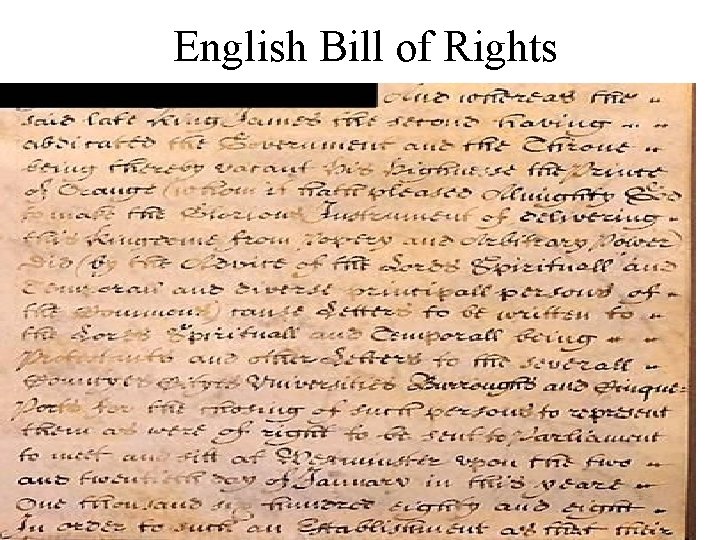 English Bill of Rights
And whereas the
said late King James the second having
abdicated the Government and the Throne
being thereby vacant his Highnesse the Prince
of Orange (whom it hath pleased Almighty God
to make the Glorious Instrument of delivering
this Kingdome from Popery and Arbitrary Power)
did (by the Advice of the Lords Spirituall and
Temporall and diverse principall persons of
the Commons) cause Letters to be written to
the Lords Spirituall and Temporall being
Protestants and other Letters to the severall
Countyes Cityes Universities Burroughs and Cinque
Ports for the choseing of such persons to represent
them as were of right to be sent to Parliament
to meet and sitt at Westminster upon the two
and twentieth day of January in this yeare
One thousand six hundred eighty and eight
In order to such an Establishment as that their